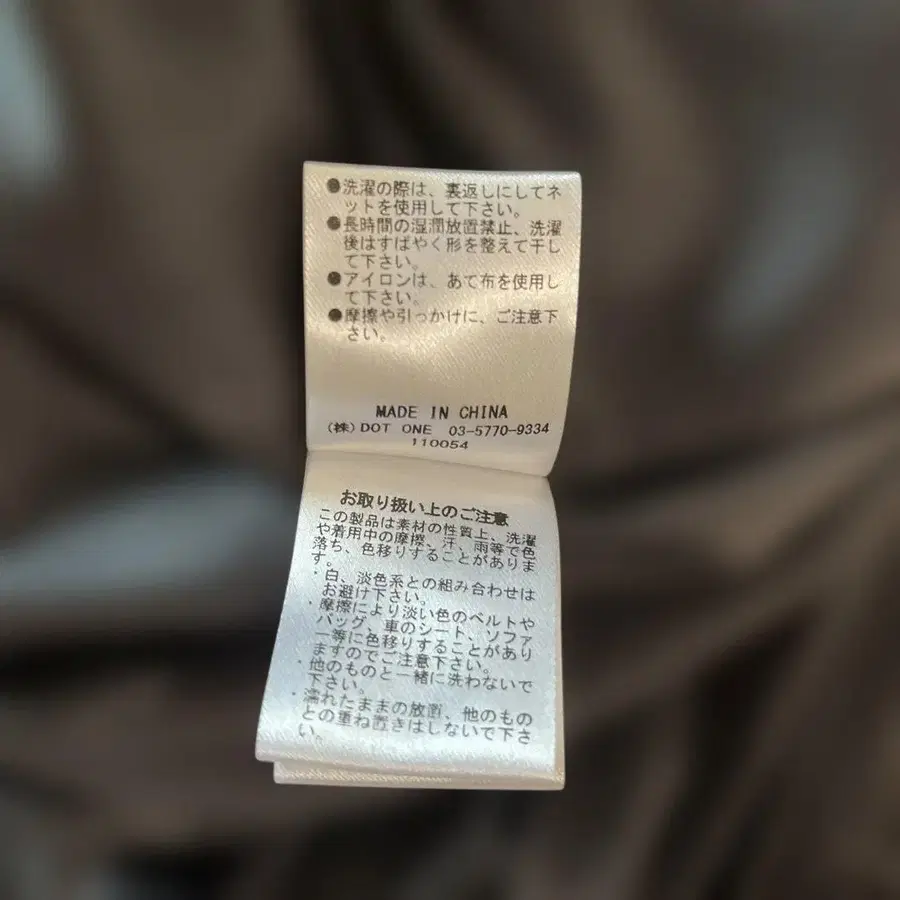 ●洗濯の際は、裏返しにしてネ
ットを使用して下さい。
●長時間の湿潤放置禁止、洗濯
後はすばやく形を整えて干し
て下さい。
●アイロンは、あて布を使用し
て下さい。
●摩擦や引っかけに、ご注意下
さい。
MADE IN CHINA
(株)DOT ONE 03-5770-9334
110054
お取り扱い上のご注意
この製品は素材の性質上、洗濯
や着用中の摩擦、汗、雨等で色
落ち、色移りすることがありま
す。
・白、淡色系との組み合わせは
お避け下さい。
・摩擦により淡い色のベルトや
バッグ、車のシート、ソファ
ー等に色移りすることがあり
ますのでご注意下さい。
・他のものと一緒に洗わないで
下さい。
・濡れたままの放置、他のもの
との重ね置きはしないで下さ
い。